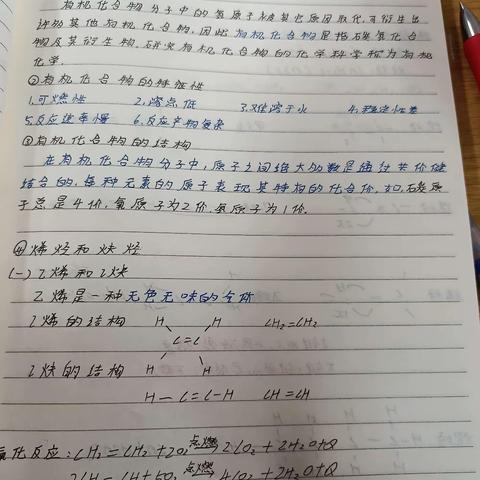 有机化合物分子中的氢原子被其它原因取代,可衍生出
许多其他有机化合物,因此有机化合物是指碳氢化合
物及其衍生物,研究有机化合物的化学科学称为有机
化学.
②有机化合物的特殊性
1.可燃性 2.溶点低 3.难溶于水 4.稳定性差
5.反应速率慢 6.反应产物复杂
③有机化合物的结构
在有机化合物分子中,原子之间绝大多数是通过共价健
结合的,每种元素的原子表现其特有的化合价.如,碳原
子总是4价,氧原子为2价,氢原子为1价.
④烯烃和炔烃
(一)乙烯和乙炔
乙烯是一种无色无味的气体
乙烯的结构 H H CH₂=CH₂
C=C
乙炔的结构 H H
H—C≡C—H CH≡CH
氧化反应:CH₂=CH₂+2O₂ 点燃→ 2CO₂+2H₂O+Q
2CH=CH+5O₂ 点燃→ 4CO₂+2H₂O+Q